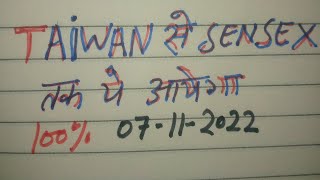 TAIWAN से SENSEX
तक ये आयेगा
100% 07-11-2022